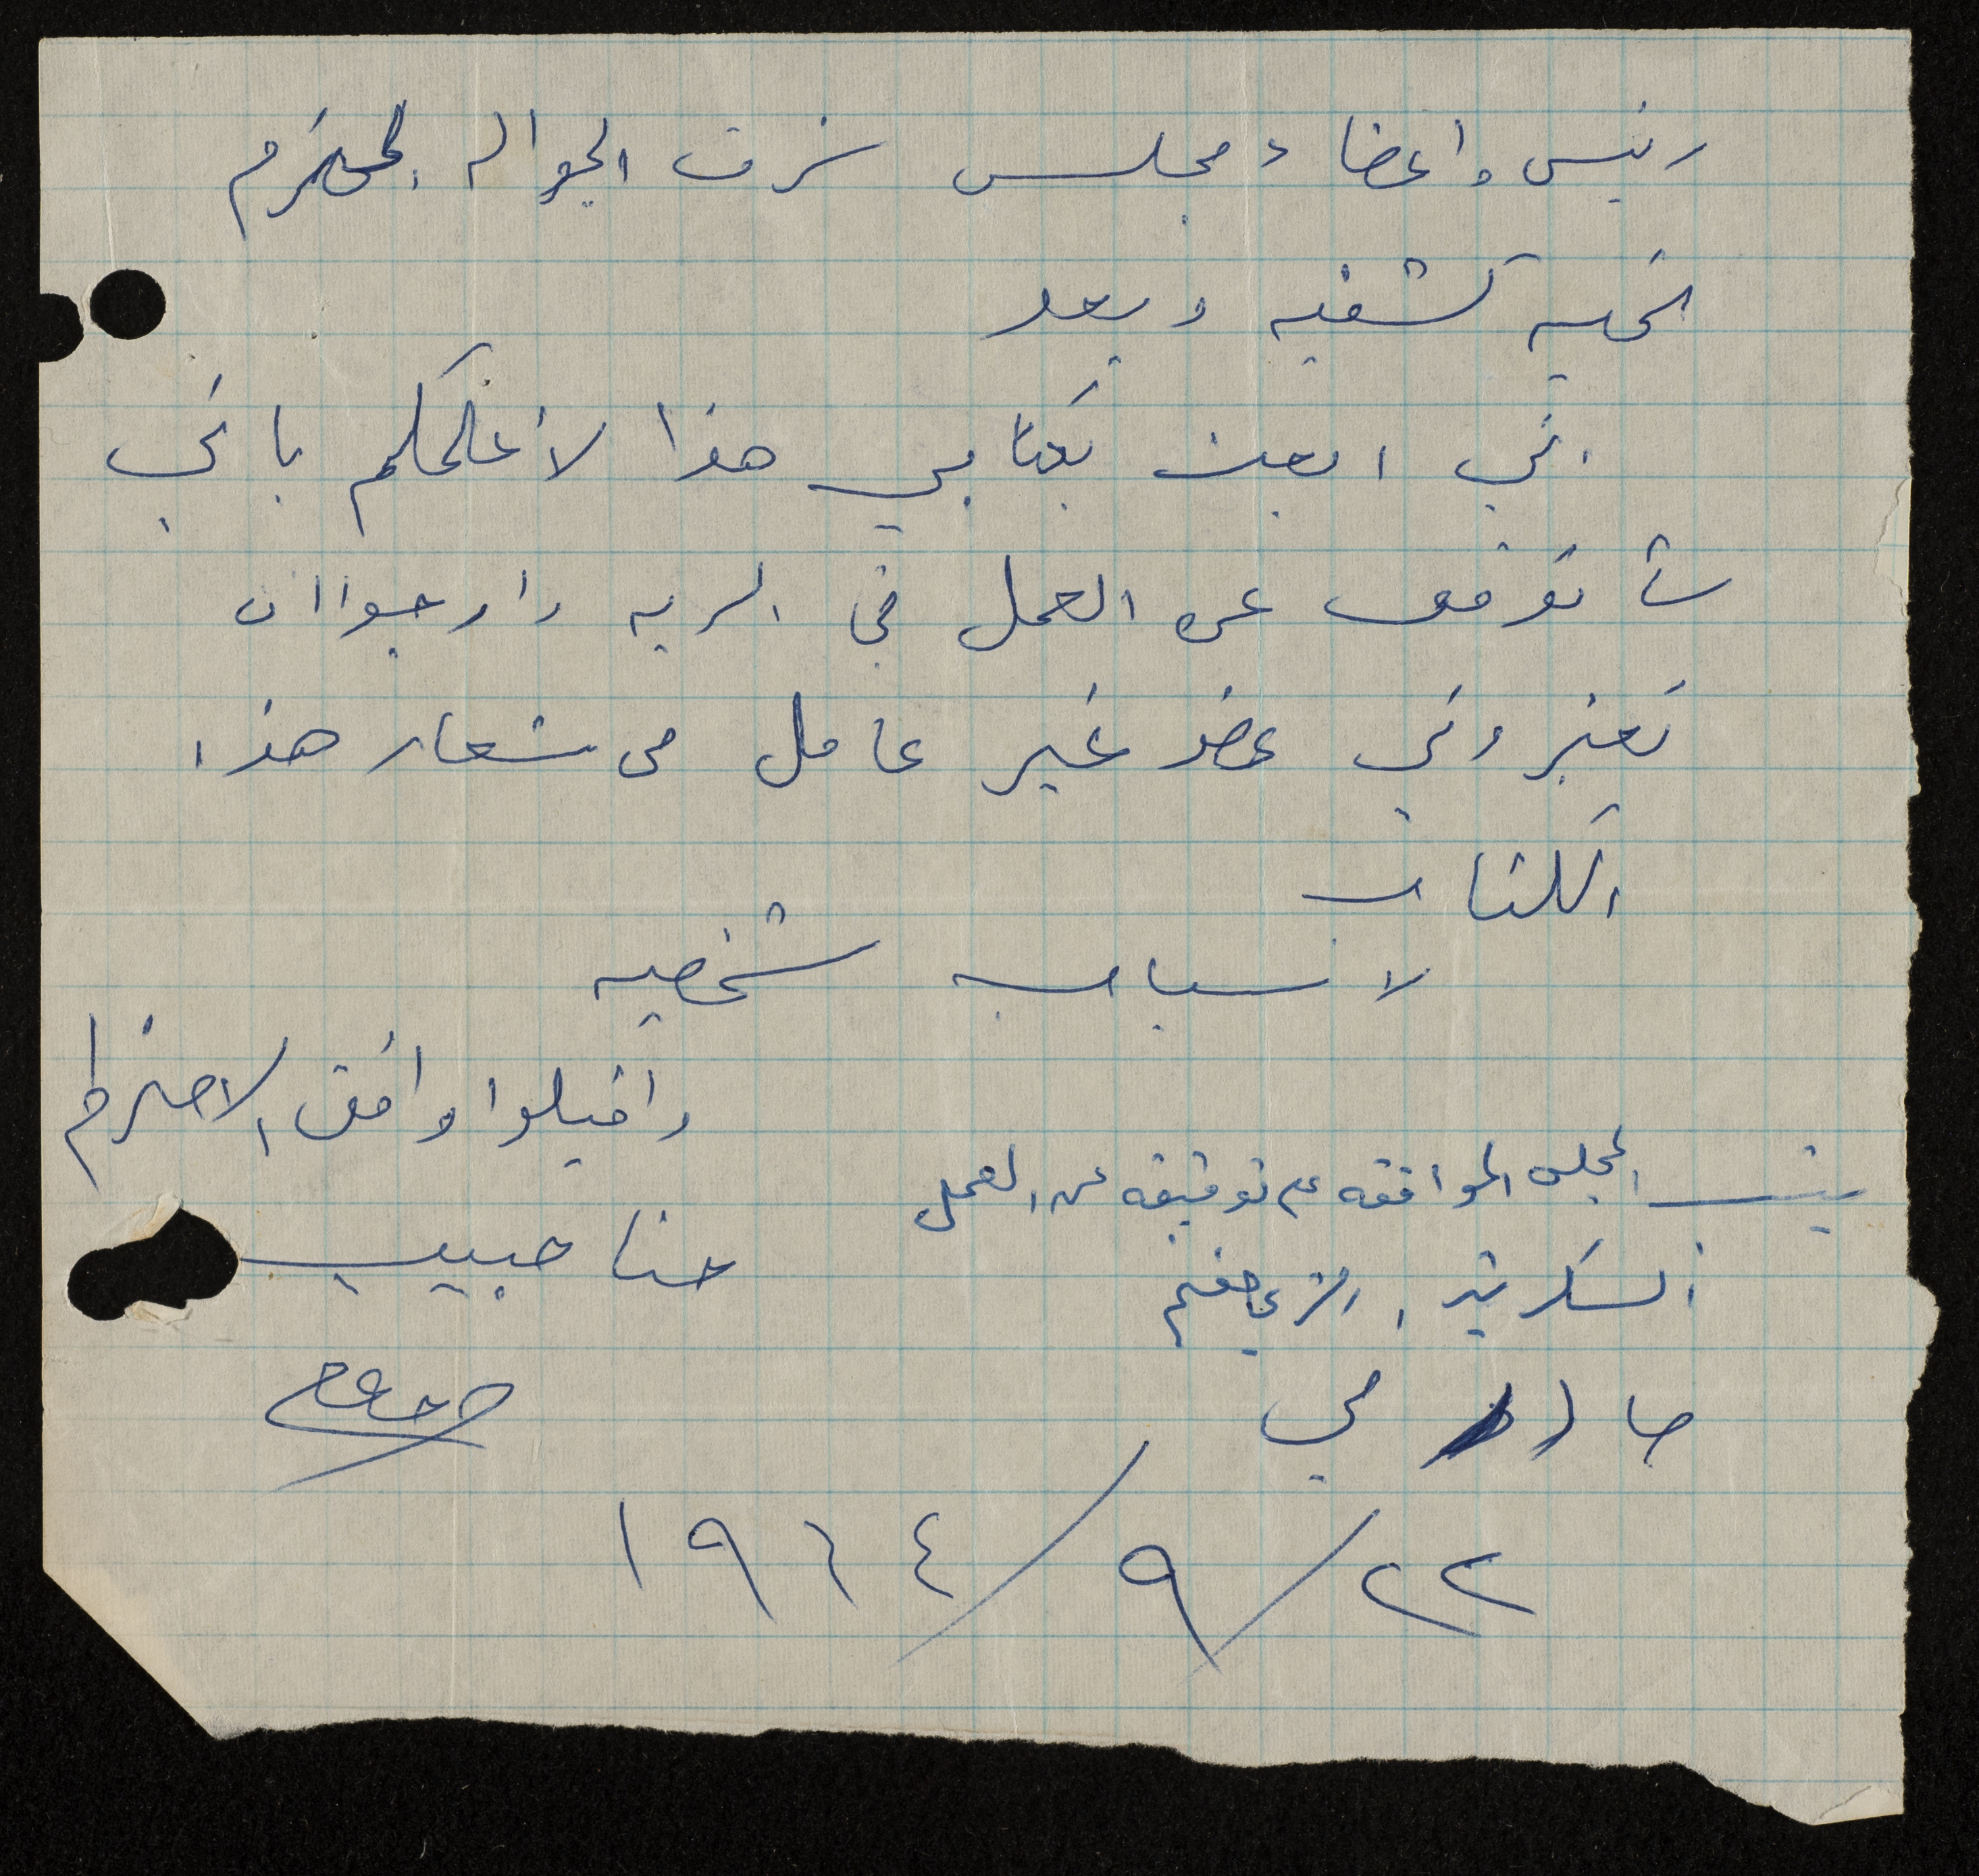 رئيس واعضاء مجلس شرف الجواله المحترم
تحيه كشفيه وبعد
اني ابعث بكتابي هذا لاعلمكم باني
سأتوقف عن العمل في السريه وارجوا ان
تعتبروني عضو غير عامل من شعار هذا
الكتاب
لاسباب شخصيه
واقبلوا وافق الاحترام
ينسب المجلس الموافقه على توقيفه عن العمل
حنا حبيب
السكرتير
٢٢/٩/١٩٦٤